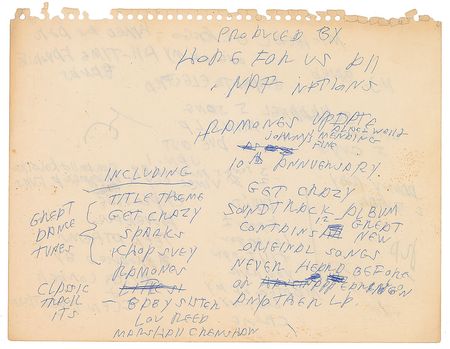 PRODUCED BY
HOPE FOR US ALL
NAR NATIONS
RAMONES UPDATE
JOHNNY MENDING
FINE
10th ANNIVERSARY
GET CRAZY
SOUNDTRACK ALBUM
CONTAINS 12 GREAT NEW
ORIGINAL SONGS
NEVER HEARD BEFORE
OR
ANOTHER LP.
INCLUDING
GREAT
DANCE
TUNES
TITLE THEME
GET CRAZY
SPARKS
+ CHOP SUEY
RAMONES
CLASSIC
TRACK
ITS
- BABY SISTER
LOU REED
MARSHALL CRENSHAW